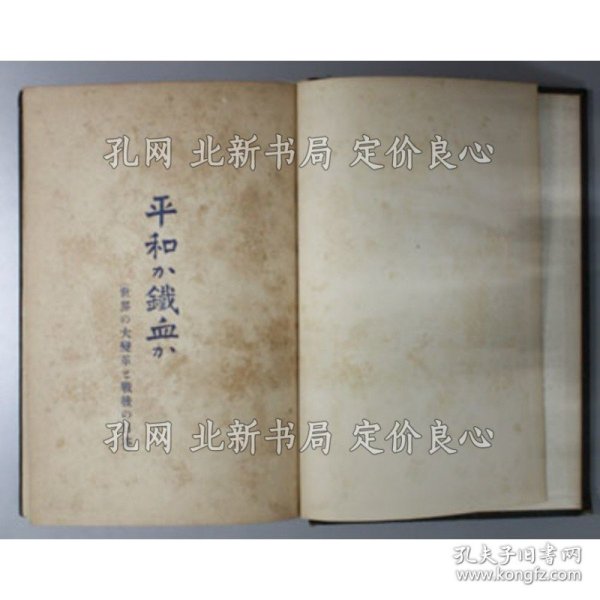 孔网 北新书局 定价良心
平和か鐵血か
世界の大變革と戰後の
孔网 北新书局 定价良心
孔夫子旧书网
www.kongfz.com